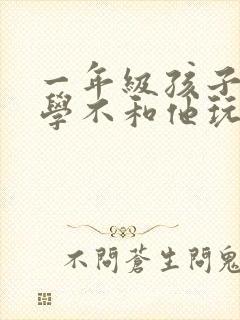 一年級孩子
學不和他玩
不問蒼生問鬼